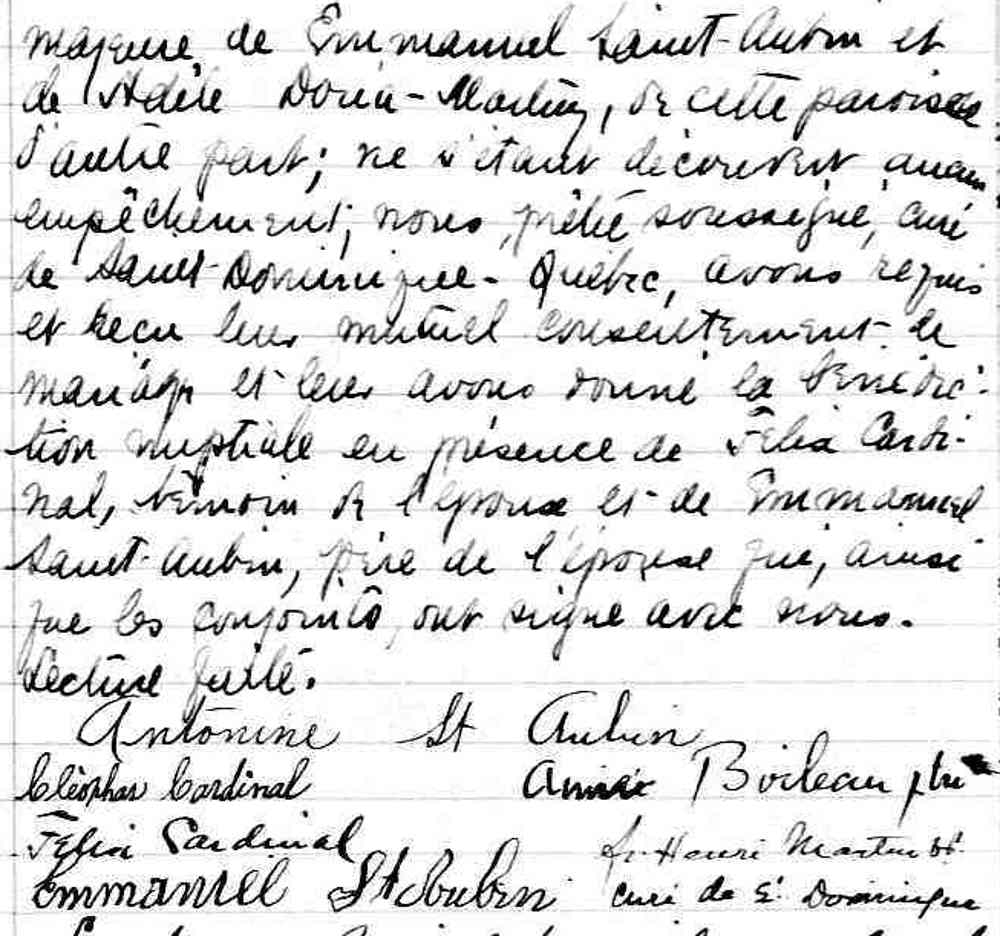 majeure de Emmanuel Saint-Aubin et
de Adèle Doria-Martin, de cette paroisse
d'autre part; ne s'étant découvert aucun
empêchement; nous, prêtre soussigné, curé
de Saint-Dominique-Québec, avons requis
et reçu leur mutuel consentement de
mariage et leur avons donné la bénédic-
tion nuptiale en présence de Félix Cardi-
nal, témoin de l'époux et de Emmanuel
Saint-Aubin, père de l'épouse qui, ainsi
que les conjoints, ont signé avec nous.
Lecture faite.
Antonine St Aubin
Cléophas Cardinal Aimé Boileau ptre
Félix Cardinal fr. Henri Martin
Emmanuel St Aubin curé de St Dominique